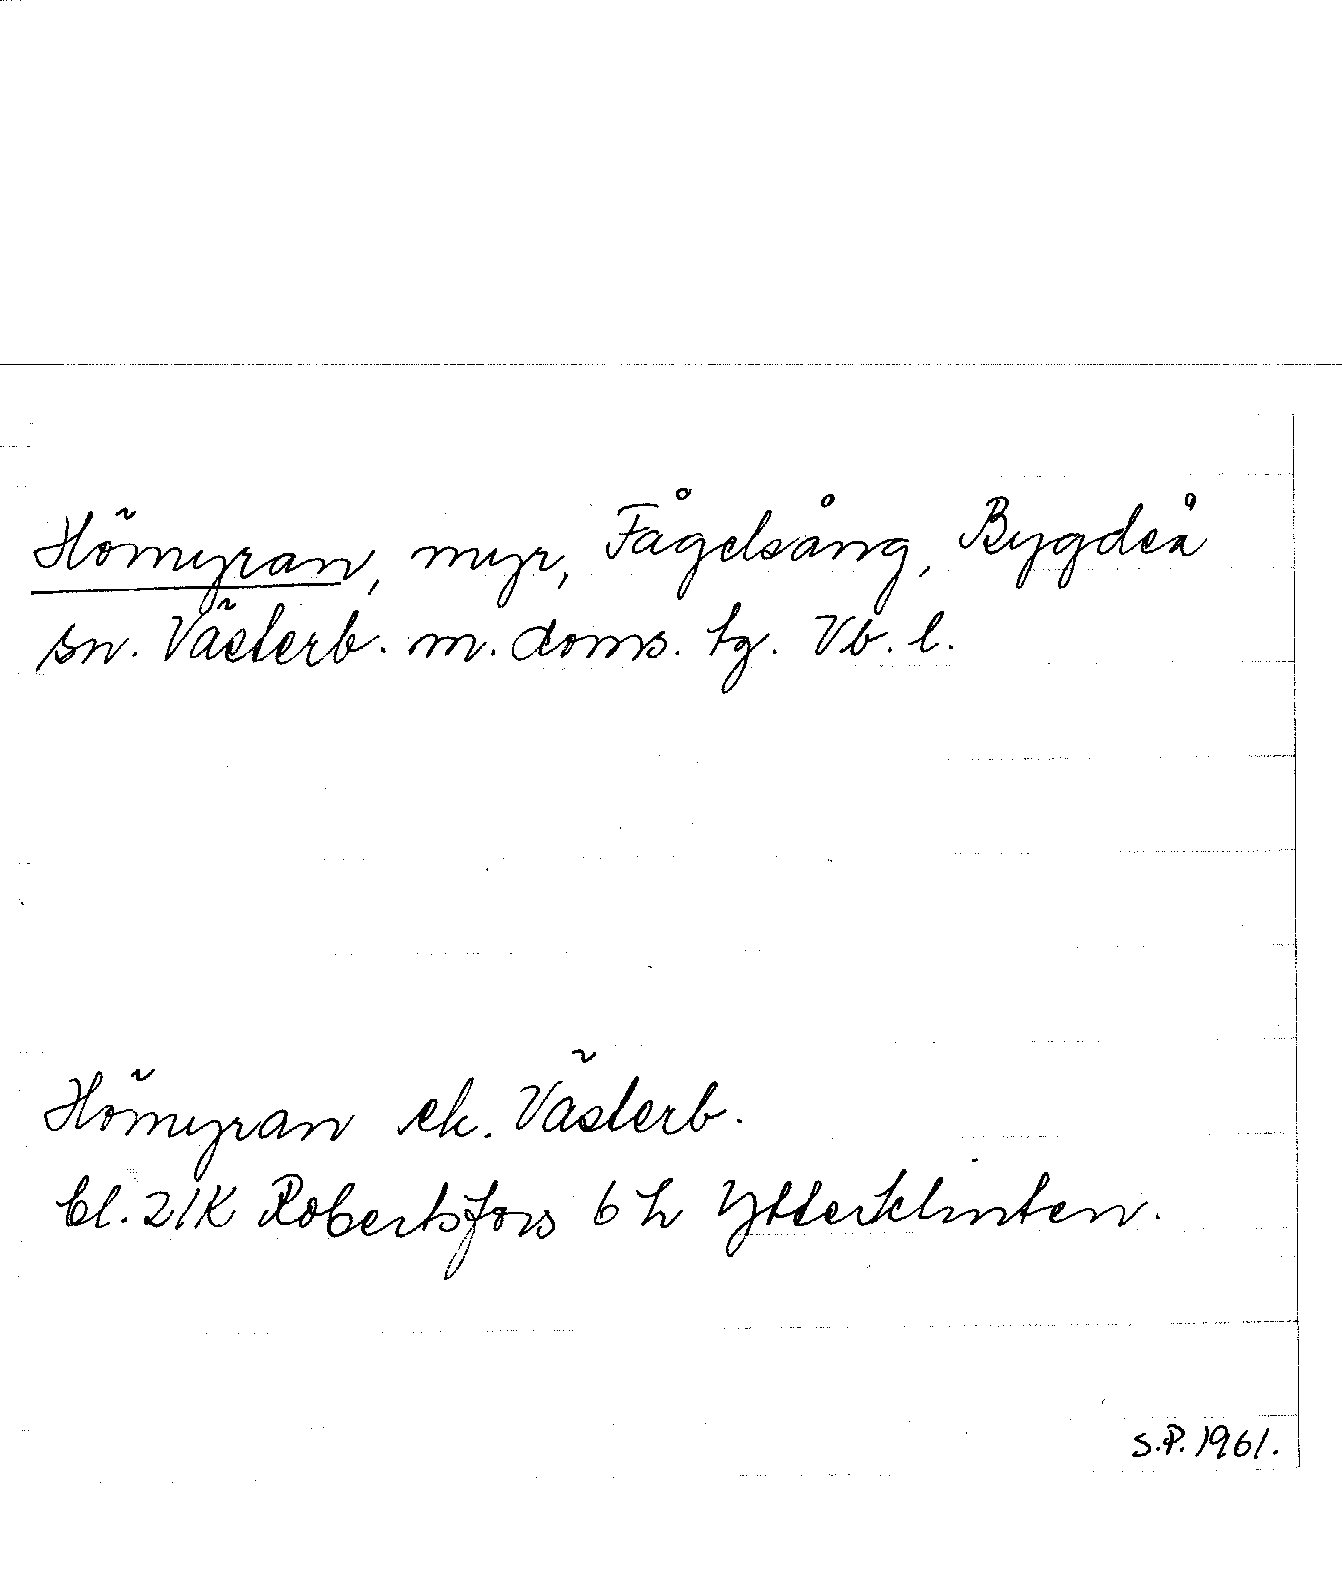 Hömyran, myr, Fågelsång, Bygdeå
sn. Västerb. m. doms. tg. Vb. l.
Hömyran ek. Västerb.
bl. 21K Robertsfors 6 h Ytterklinten.
S.P. 1961.